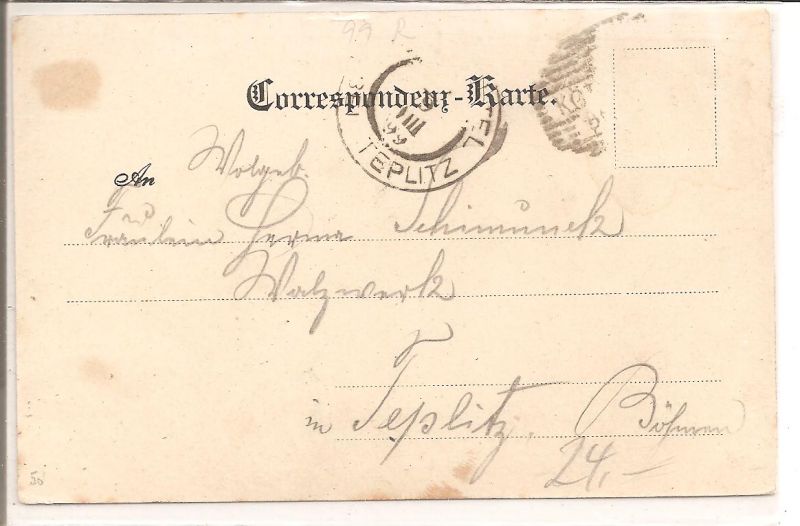 99 R
Correspondenz-Karte.
TEPLITZ
VIII
99
An
Wolgeb.
Fräulein Herma Schimuneck
Walzwerk
in Teplitz, Böhmen
24,-
50